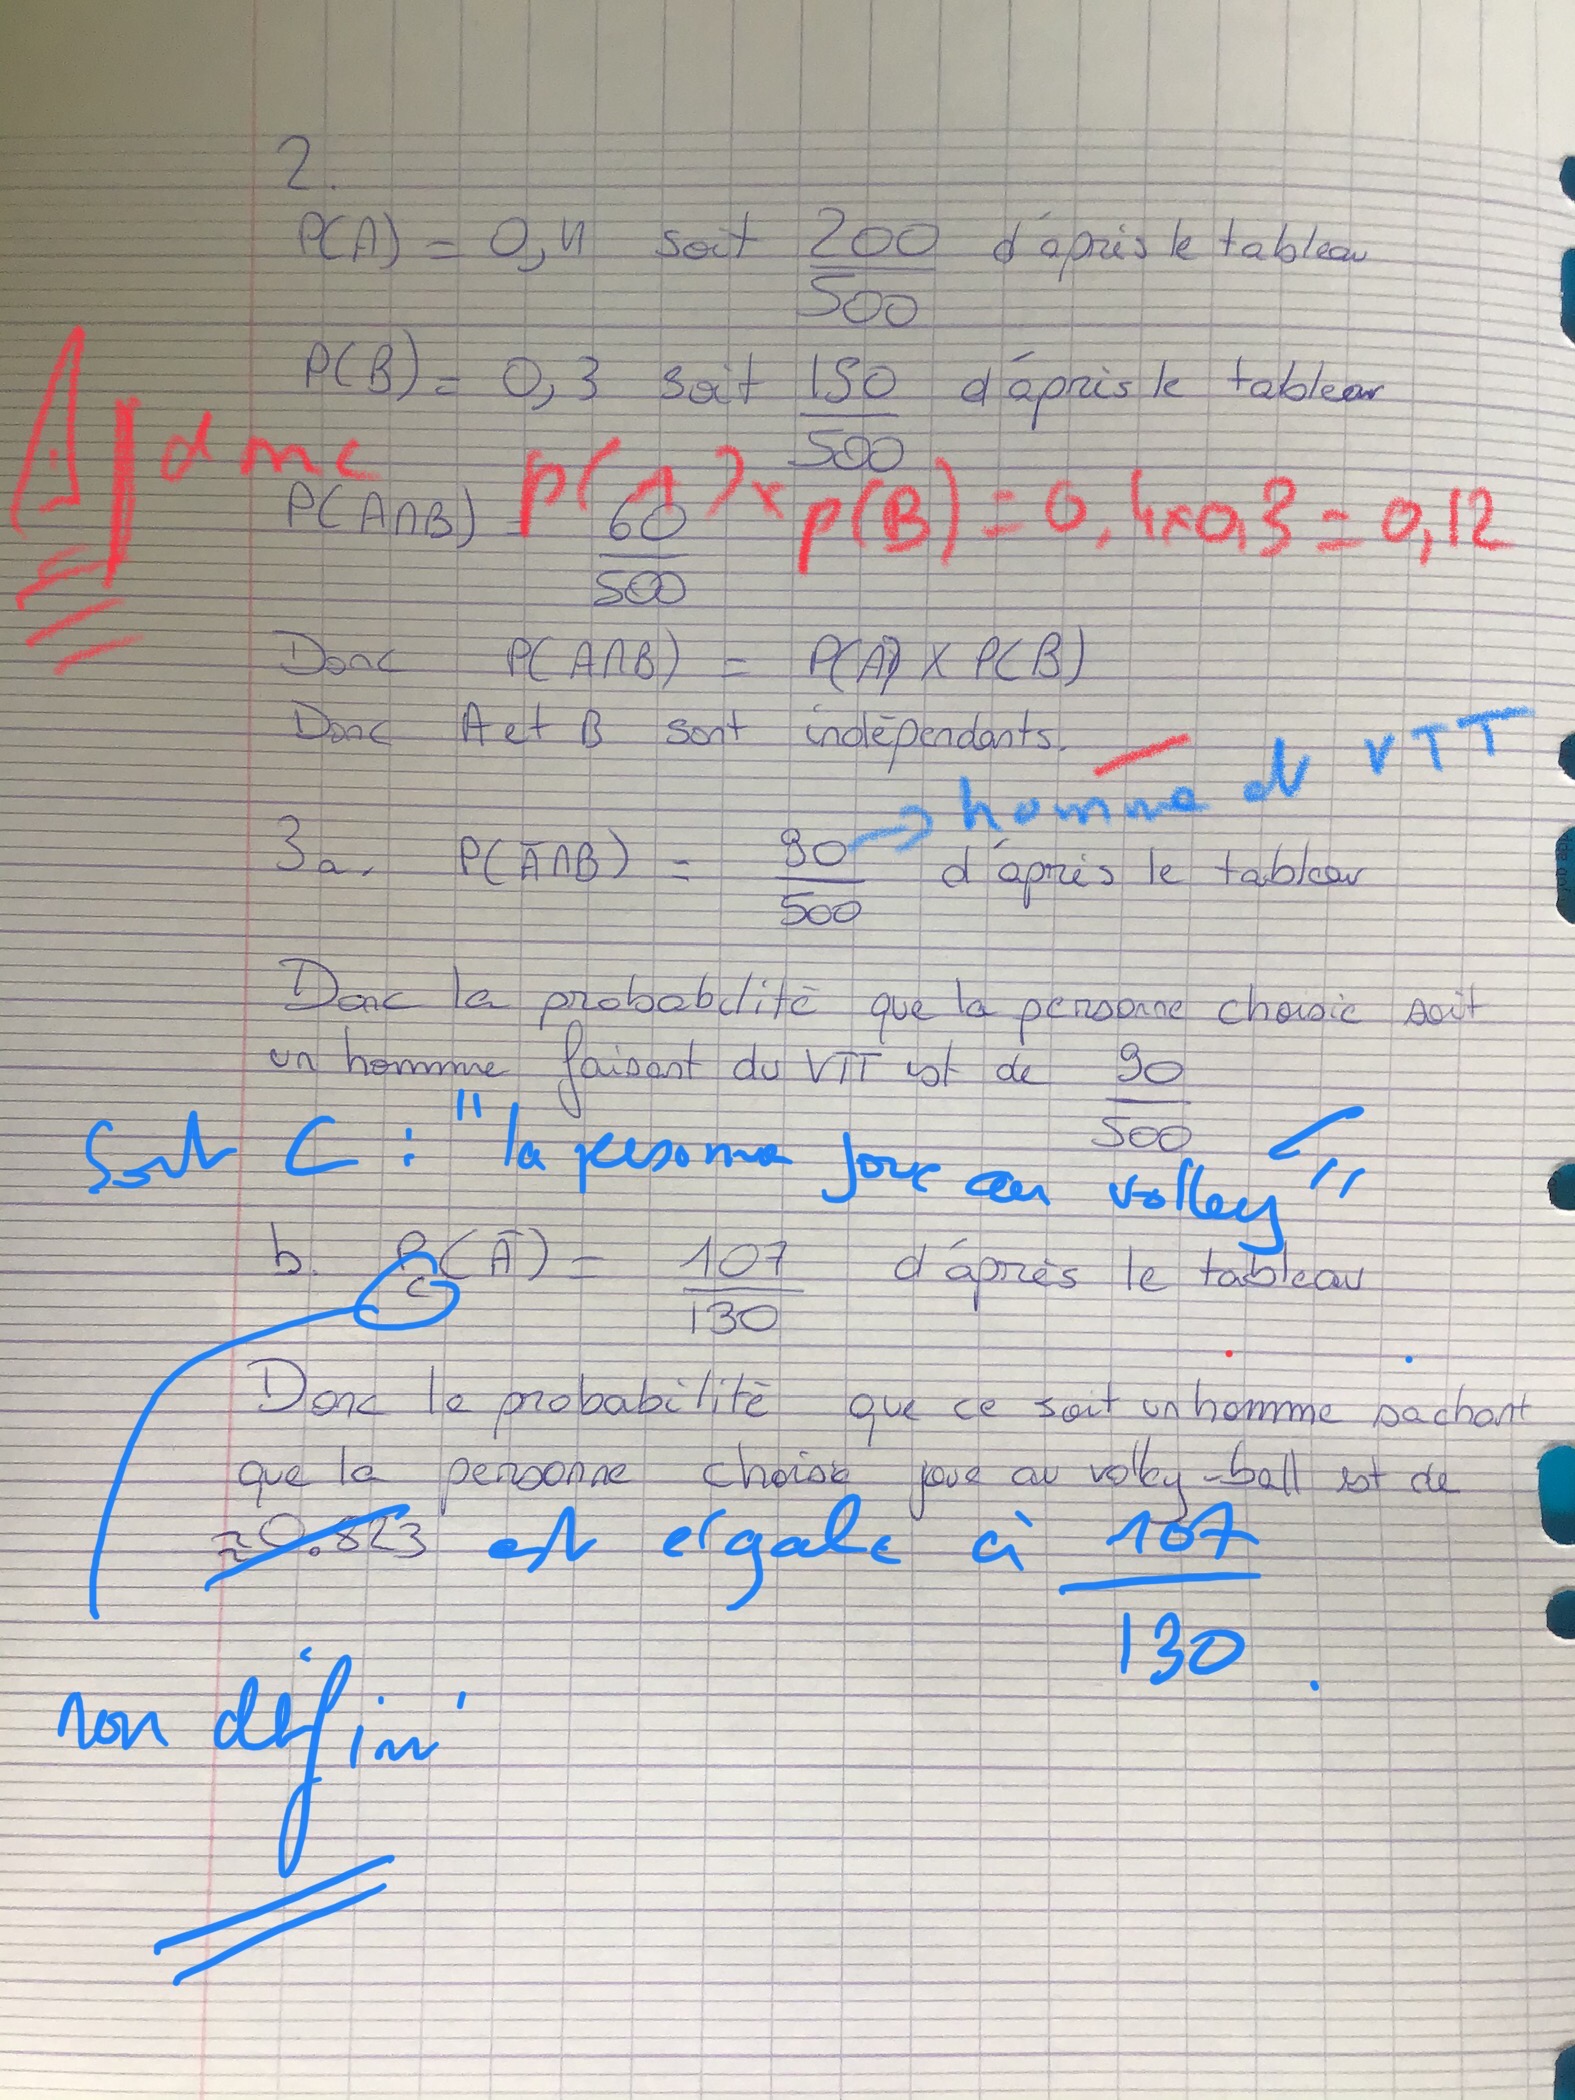 2.
P(A) = 0,4 soit 200/500 d'après le tableau
P(B) = 0,3 soit 150/500 d'après le tableau
donc p(A) × p(B) = 0,4×0,3 = 0,12
P(A∩B) = 60/500
Donc P(A∩B) = P(A) × P(B)
Donc A et B sont indépendants.
homme et VTT
3a. P(Ā∩B) = 90/500 d'après le tableau
Donc la probabilité que la personne choisie soit
un homme faisant du VTT est de 90/500
Soit C : "la personne joue au volley"
b. P_C(Ā) = 107/130 d'après le tableau
Donc la probabilité que ce soit un homme sachant
que la personne choisie joue au volley-ball est de
≈0.823 est égale à 107/130.
non défini